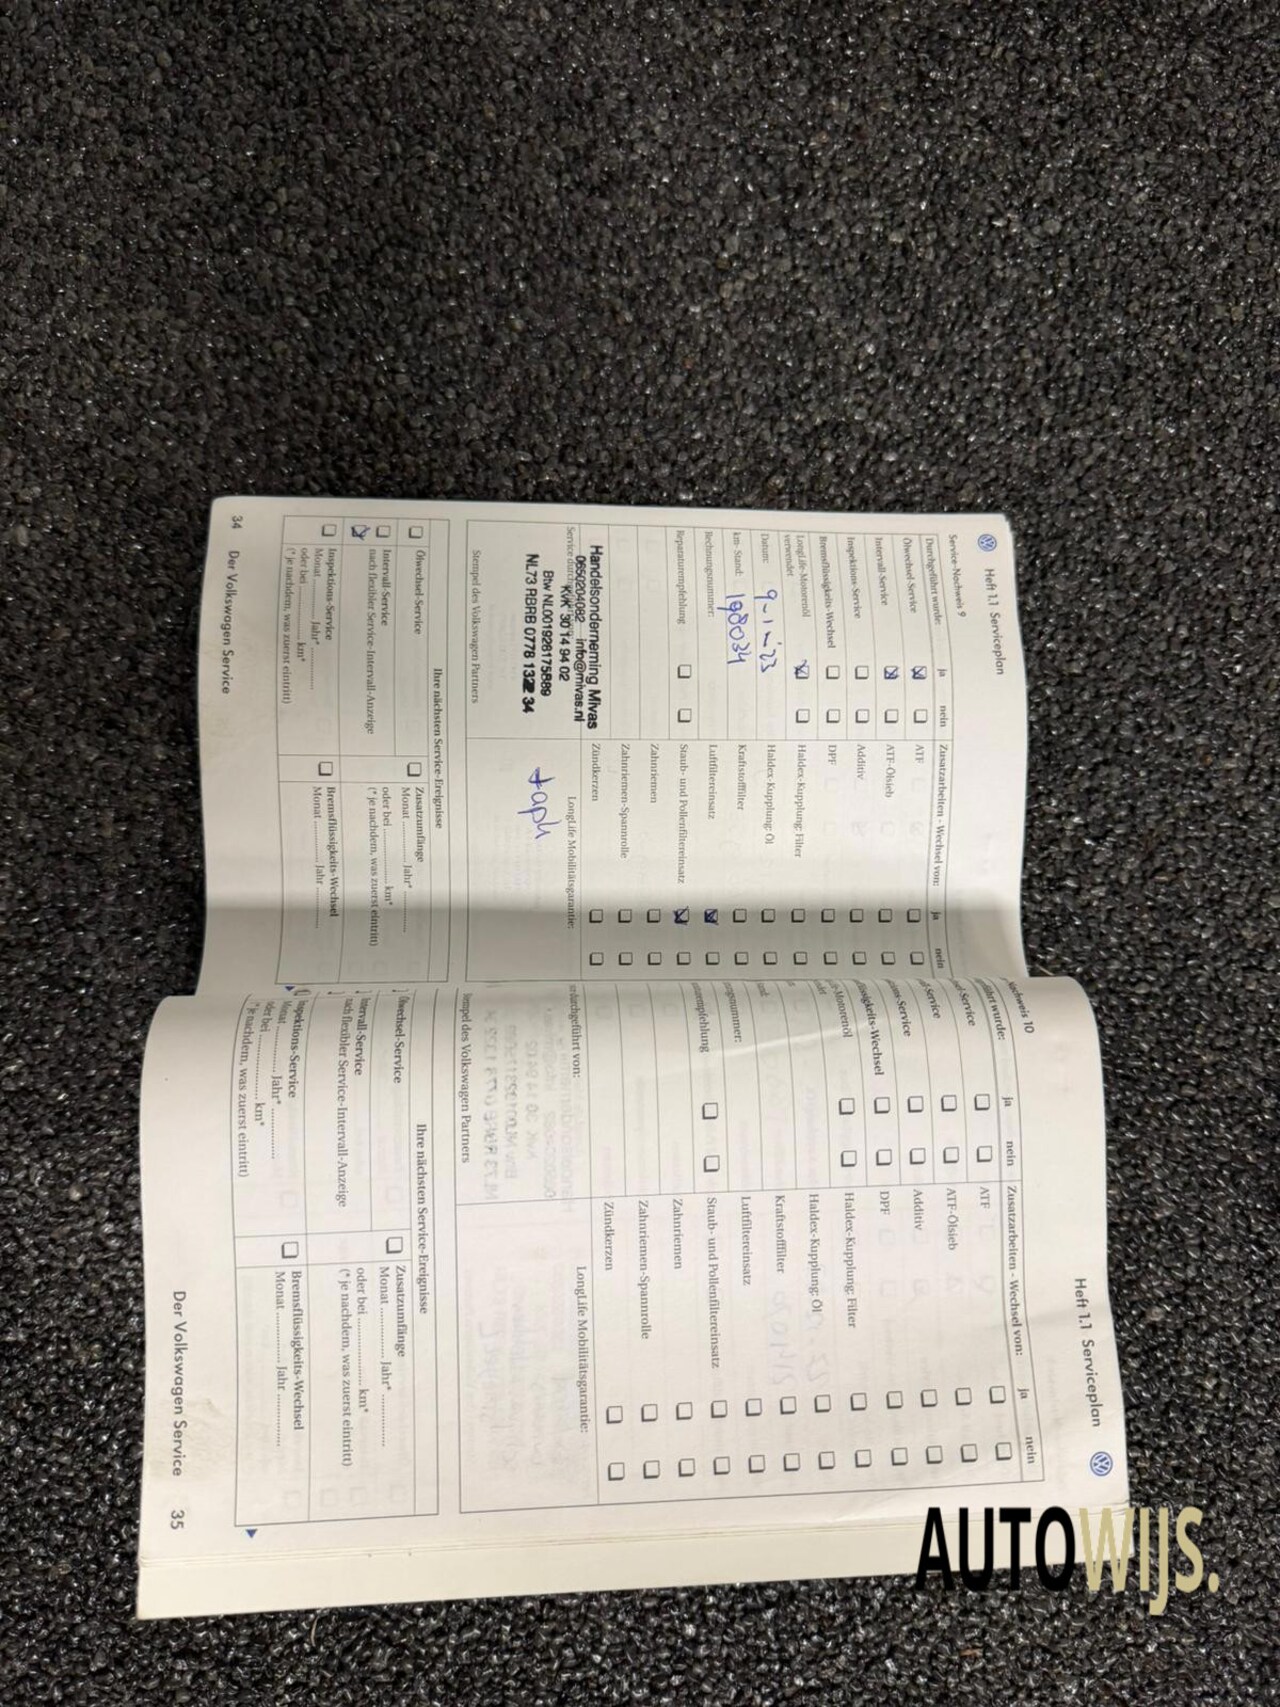 Heft 1.1 Serviceplan
Service-Nachweis 9
Durchgeführt wurde: ja nein
Ölwechsel-Service
Intervall-Service
Inspektions-Service
Bremsflüssigkeits-Wechsel
LongLife-Motorenöl
verwendet
Datum: 9-1-23
km- Stand: 198034
Rechnungsnummer:
Reparaturempfehlung
Zusatzarbeiten - Wechsel von: ja nein
ATF
ATF-Ölsieb
Additiv
DPF
Haldex-Kupplung: Filter
Haldex-Kupplung: Öl
Kraftstofffilter
Luftfiltereinsatz
Staub- und Pollenfiltereinsatz
Zahnriemen
Zahnriemen-Spannrolle
Zündkerzen
Service durch
Handelsonderneming Mivas
0650204082 info@mivas.nl
KvK 30 14 94 02
Btw NL001928175B89
NL73 RBRB 0778 1322 34
Stempel des Volkswagen Partners
LongLife Mobilitätsgarantie:
Ihre nächsten Service-Ereignisse
Ölwechsel-Service
Intervall-Service
nach flexibler Service-Intervall-Anzeige
Inspektions-Service
Monat .......... Jahr* ..........
oder bei .......... km*
(* je nachdem, was zuerst eintritt)
Zusatzumfänge
Monat .......... Jahr* ..........
oder bei .......... km*
(* je nachdem, was zuerst eintritt)
Bremsflüssigkeits-Wechsel
Monat .......... Jahr ..........
34 Der Volkswagen Service
Heft 1.1 Serviceplan
chweis 10
ührt wurde: ja nein
el-Service
-Service
ns-Service
üssigkeits-Wechsel
-Motorenöl
ungsnummer:
turempfehlung
Zusatzarbeiten - Wechsel von: ja nein
ATF
ATF-Ölsieb
Additiv
DPF
Haldex-Kupplung: Filter
Haldex-Kupplung: Öl
Kraftstofffilter
Luftfiltereinsatz
Staub- und Pollenfiltereinsatz
Zahnriemen
Zahnriemen-Spannrolle
Zündkerzen
durchgeführt von:
Stempel des Volkswagen Partners
LongLife Mobilitätsgarantie:
Ihre nächsten Service-Ereignisse
Ölwechsel-Service
Intervall-Service
nach flexibler Service-Intervall-Anzeige
Inspektions-Service
Monat .......... Jahr* ..........
oder bei .......... km*
(* je nachdem, was zuerst eintritt)
Zusatzumfänge
Monat .......... Jahr* ..........
oder bei .......... km*
(* je nachdem, was zuerst eintritt)
Bremsflüssigkeits-Wechsel
Monat .......... Jahr ..........
Der Volkswagen Service 35
AUTOWIJS.